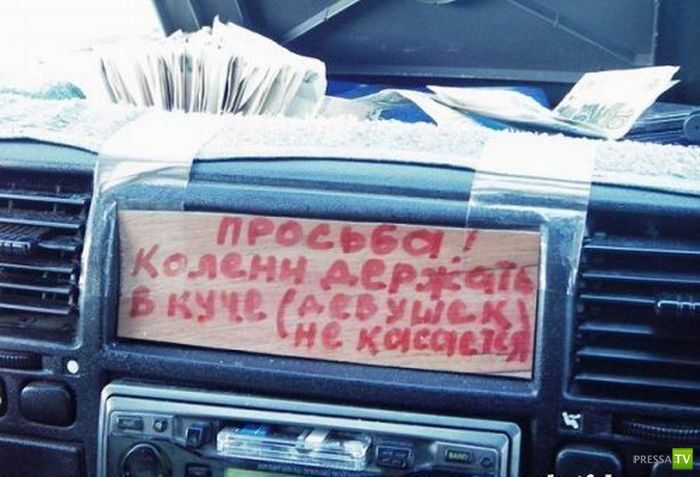 ПРОСЬБА!
КОЛЕНИ ДЕРЖАТЬ
В КУЧЕ (ДЕВУШЕК)
НЕ КАСАЕТСЯ
BAND
PRESSA TV